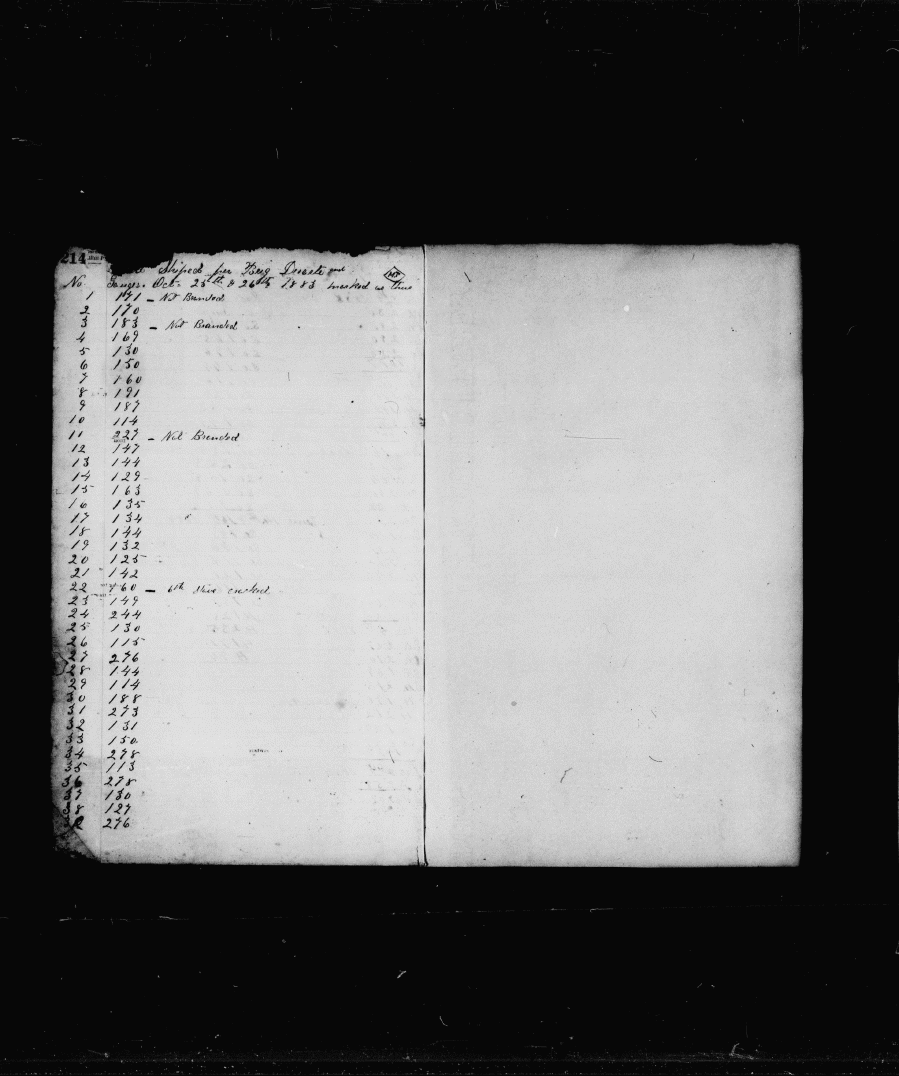 214
Shiped per Brig and
HP
No. Gauges. Oct. 25th & 26th, 1883 marked as thus
1 171 - Not Branded
2 170
3 183 - Not Branded
4 169
5 130
6 150
7 160
8 191
9 187
10 114
11 227 - Not Branded
12 147
13 144
14 129
15 163
16 135
17 134
18 144
19 132
20 125
21 142
22 160 - 6th cracked
23 149
24 244
25 130
26 115
27 276
28 144
29 114
30 188
31 273
32 131
33 150
34 278
35 113
36 278
37 130
38 127
276